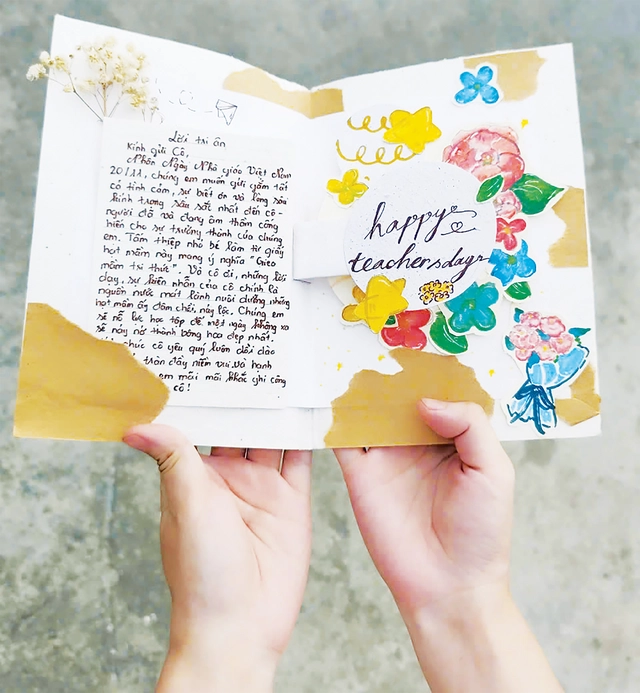 Lời tri ân
Kính gửi Cô,
Nhân Ngày Nhà giáo Việt Nam
20/11, chúng em muốn gửi gắm tất
cả tình cảm, sự biết ơn và lòng sâu
kính trọng sâu sắt nhất đến cô -
người đã và đang âm thầm cống
hiến cho sự trưởng thành của chúng
em. Tấm thiệp nhỏ bé làm từ giấy
hạt mầm này mang ý nghĩa "Gieo
mầm tri thức". Vở cô ơi, những lời
dạy, sự kiên nhẫn của cô chính là
nguồn nước mát lành nuôi dưỡng những
hạt mầm ấy đâm chồi, nảy lộc. Chúng em
sẽ nỗ lực học tập để một ngày không xa
sẽ nảy nở thành bông hoa đẹp nhất.
chúc cô yêu quý luôn dồi dào
tràn đầy niềm vui và hạnh
em mãi mãi khắc ghi công
cô!
happy
teachersdays